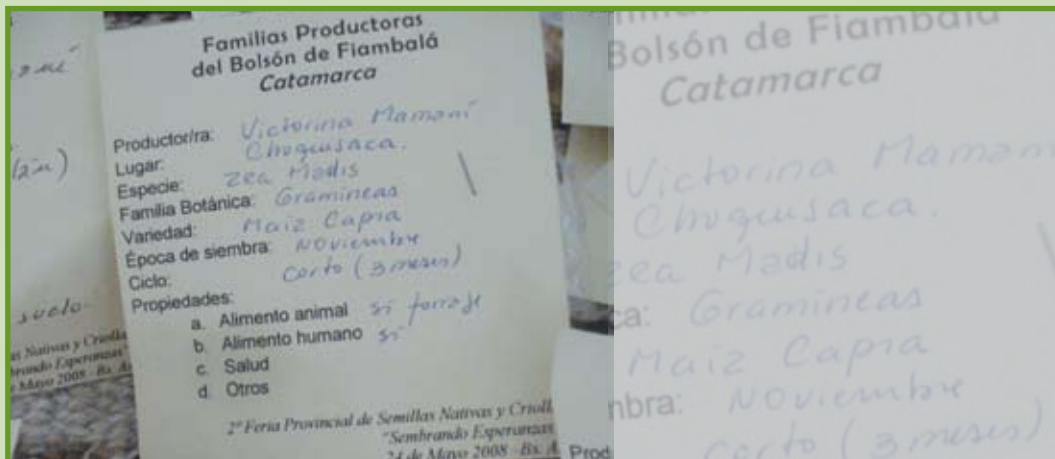 Familias Productoras
del Bolsón de Fiambalá
Catamarca
Productor/ra: Victorina Mamaní
Lugar: Chuquisaca.
Especie: Zea Madis
Familia Botánica: Gramineas
Variedad: Maiz Capia
Época de siembra: Noviembre
Ciclo: Corto (3 meses)
Propiedades:
a. Alimento animal si forraje
b. Alimento humano si
c. Salud
d. Otros
2º Feria Provincial de Semillas Nativas y Crioll
"Sembrando Esperanzas
24 de Mayo 2008 - Bs. A
suelo-
as Nativas y Criolla
brando Esperanzas"
Mayo 2008 - Bs. A
Prod
Bolsón de Fiambalá
Catamarca
Victorina Mamaní
Chuquisaca.
Zea Madis
ca: Gramineas
Maiz Capia
mbra: Noviembre
Corto (3 meses)